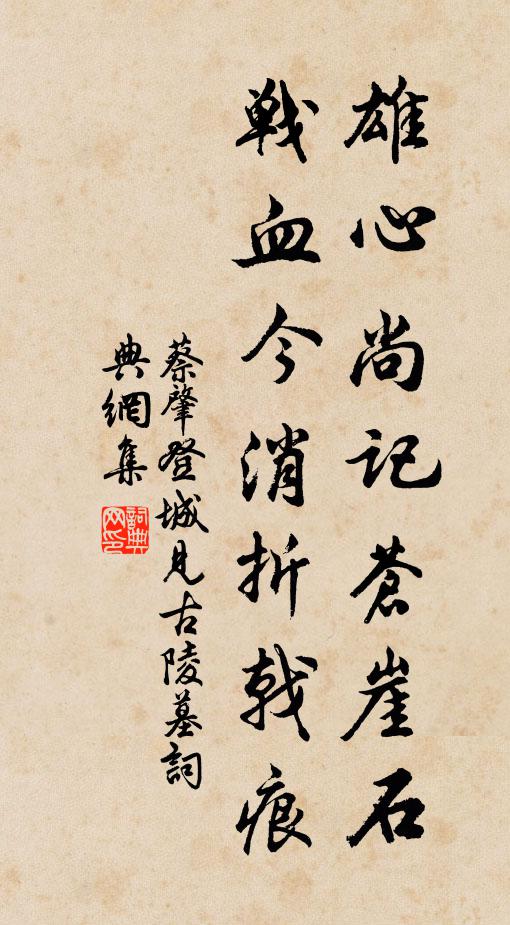 雄心尚记苍崖石
戦血今消折戟痕
蔡肇登城見古陵墓詞
典網集
詞典
网印